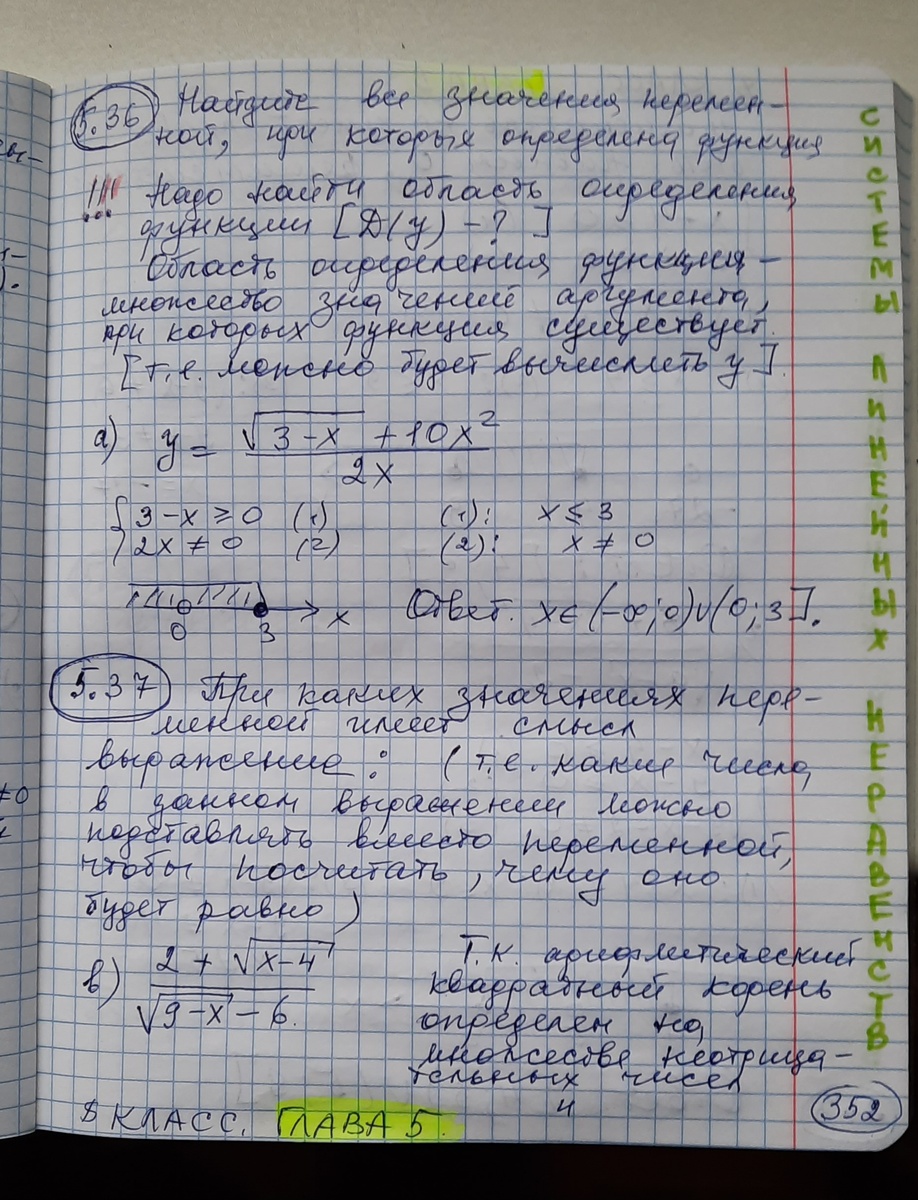 5.36 Найдите все значения перемен-
ной, при которых определена функция
!!! Надо найти область определения
функции [D(y) - ?]
Область определения функции -
множество значений аргумента,
при которых функция существует.
[т.е. можно будет вычислить y].
а) y = (√(3-x) + 10x²) / 2x
{ 3-x ≥ 0 (1) (1): x ≤ 3
2x ≠ 0 (2) (2): x ≠ 0
0 3 x Ответ. x∈(-∞;0)∪(0;3].
5.37 При каких значениях пере-
менной имеет смысл
выражение: (т.е. какие числа
в данном выражении можно
подставлять вместо переменной,
чтобы посчитать, чему оно
будет равно)
в) (2 + √(x-4)) / (√(9-x) - 6.)
Т.к. арифметический
квадратный корень
определен на
множестве неотрица-
тельных чисел
и
8 КЛАСС. ГЛАВА 5.
352
СИСТЕМЫ ЛИНЕЙНЫХ НЕРАВЕНСТВ
≠0